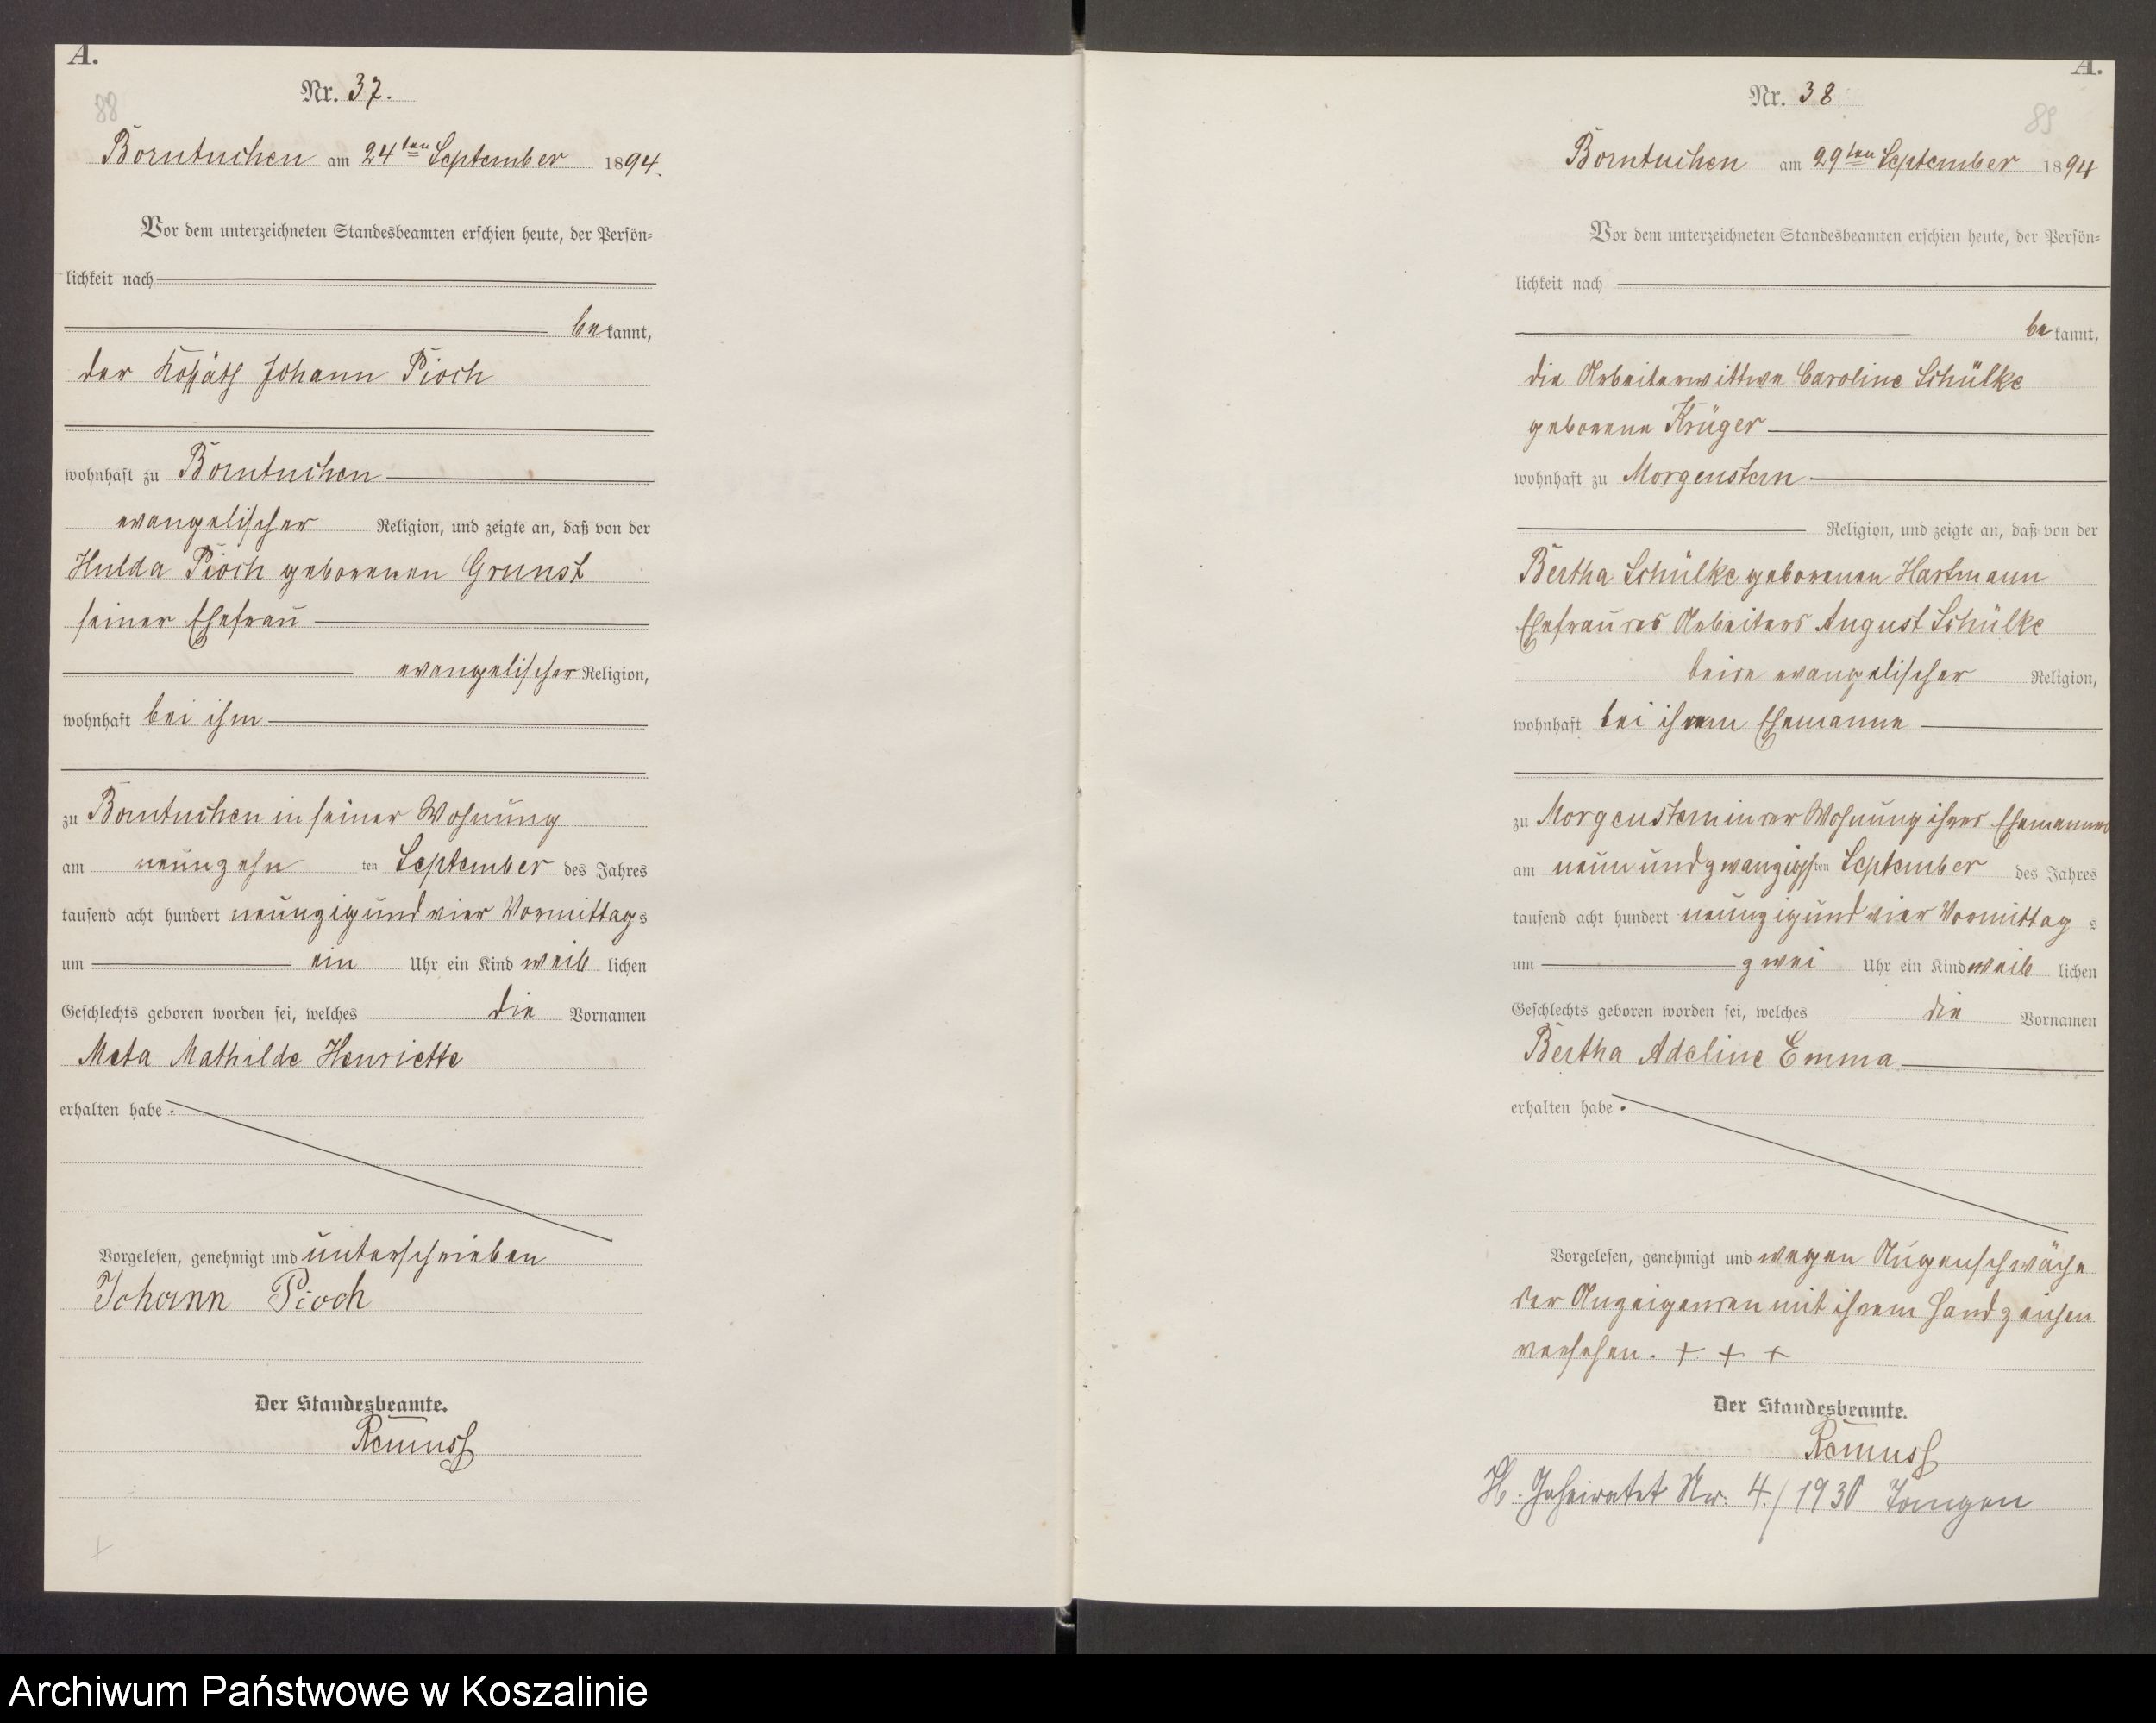 A.
88
Nr. 37.
Borntuchen am 24ten September 1894.
Vor dem unterzeichneten Standesbeamten erschien heute, der Persön=
lichkeit nach
bekannt,
der Kossäth Johann Pioch
wohnhaft zu Borntuchen
evangelischer Religion, und zeigte an, daß von der
Hulda Pioch geborenen Grunst
seiner Ehefrau
evangelischer Religion,
wohnhaft bei ihm
zu Borntuchen in seiner Wohnung
am neunzehn ten September des Jahres
tausend acht hundert neunzig und vier Vormittags
um ein Uhr ein Kind weiblichen
Geschlechts geboren worden sei, welches die Vornamen
Meta Mathilde Henriette
erhalten habe.
Vorgelesen, genehmigt und unterschrieben
Johann Pioch
Der Standesbeamte.
Remuss
A.
89
Nr. 38
Borntuchen am 29ten September 1894
Vor dem unterzeichneten Standesbeamten erschien heute, der Persön=
lichkeit nach
bekannt,
die Arbeiterwittwe Caroline Schülke
geborene Krüger
wohnhaft zu Morgenstern
Religion, und zeigte an, daß von der
Bertha Schülke geborenen Hartmann
Ehefrau des Arbeiters August Schülke
beide evangelischer Religion,
wohnhaft bei ihrem Ehemanne
zu Morgenstern in der Wohnung ihres Ehemannes
am neun und zwanzigsten September des Jahres
tausend acht hundert neunzig und vier Vormittag s
um zwei Uhr ein Kind weiblichen
Geschlechts geboren worden sei, welches die Vornamen
Bertha Adeline Emma
erhalten habe.
Vorgelesen, genehmigt und wegen Augenschwäche
der Anzeigenden mit ihrem Handzeichen
versehen. + + +
Der Standesbeamte.
Remuss
H. Geheiratet Nr. 4./1930
Archiwum Państwowe w Koszalinie